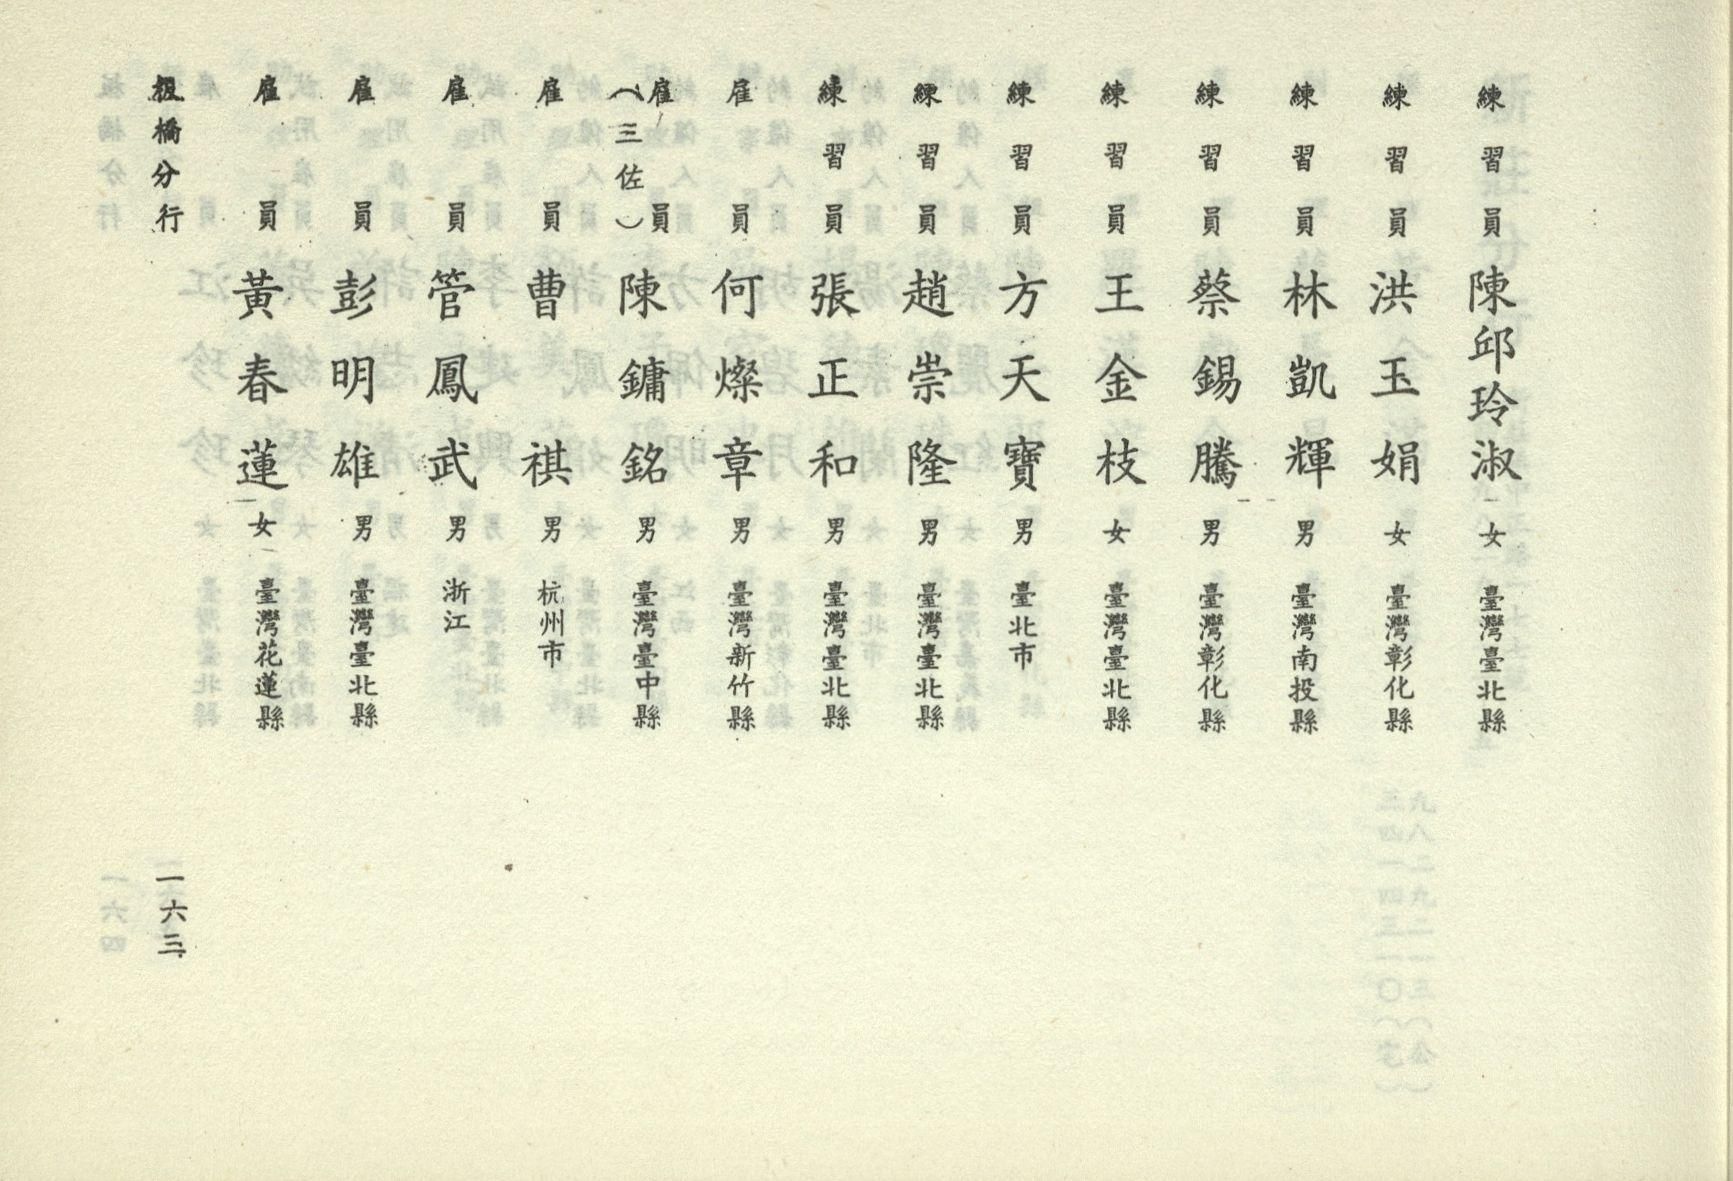 練習員 陳邱玲淑 女 臺灣臺北縣
練習員 洪玉娟 女 臺灣彰化縣
練習員 林凱輝 男 臺灣南投縣
練習員 蔡錫騰 男 臺灣彰化縣
練習員 王金枝 女 臺灣臺北縣
練習員 方天寶 男 臺北市
練習員 趙崇隆 男 臺灣臺北縣
練習員 張正和 男 臺灣臺北縣
雇員 何燦章 男 臺灣新竹縣
雇員(三佐) 陳鏞銘 男 臺灣臺中縣
雇員 曹祺 男 杭州市
雇員 管鳳武 男 浙江
雇員 彭明雄 男 臺灣臺北縣
雇員 黃春蓮 女 臺灣花蓮縣
板橋分行
一六三